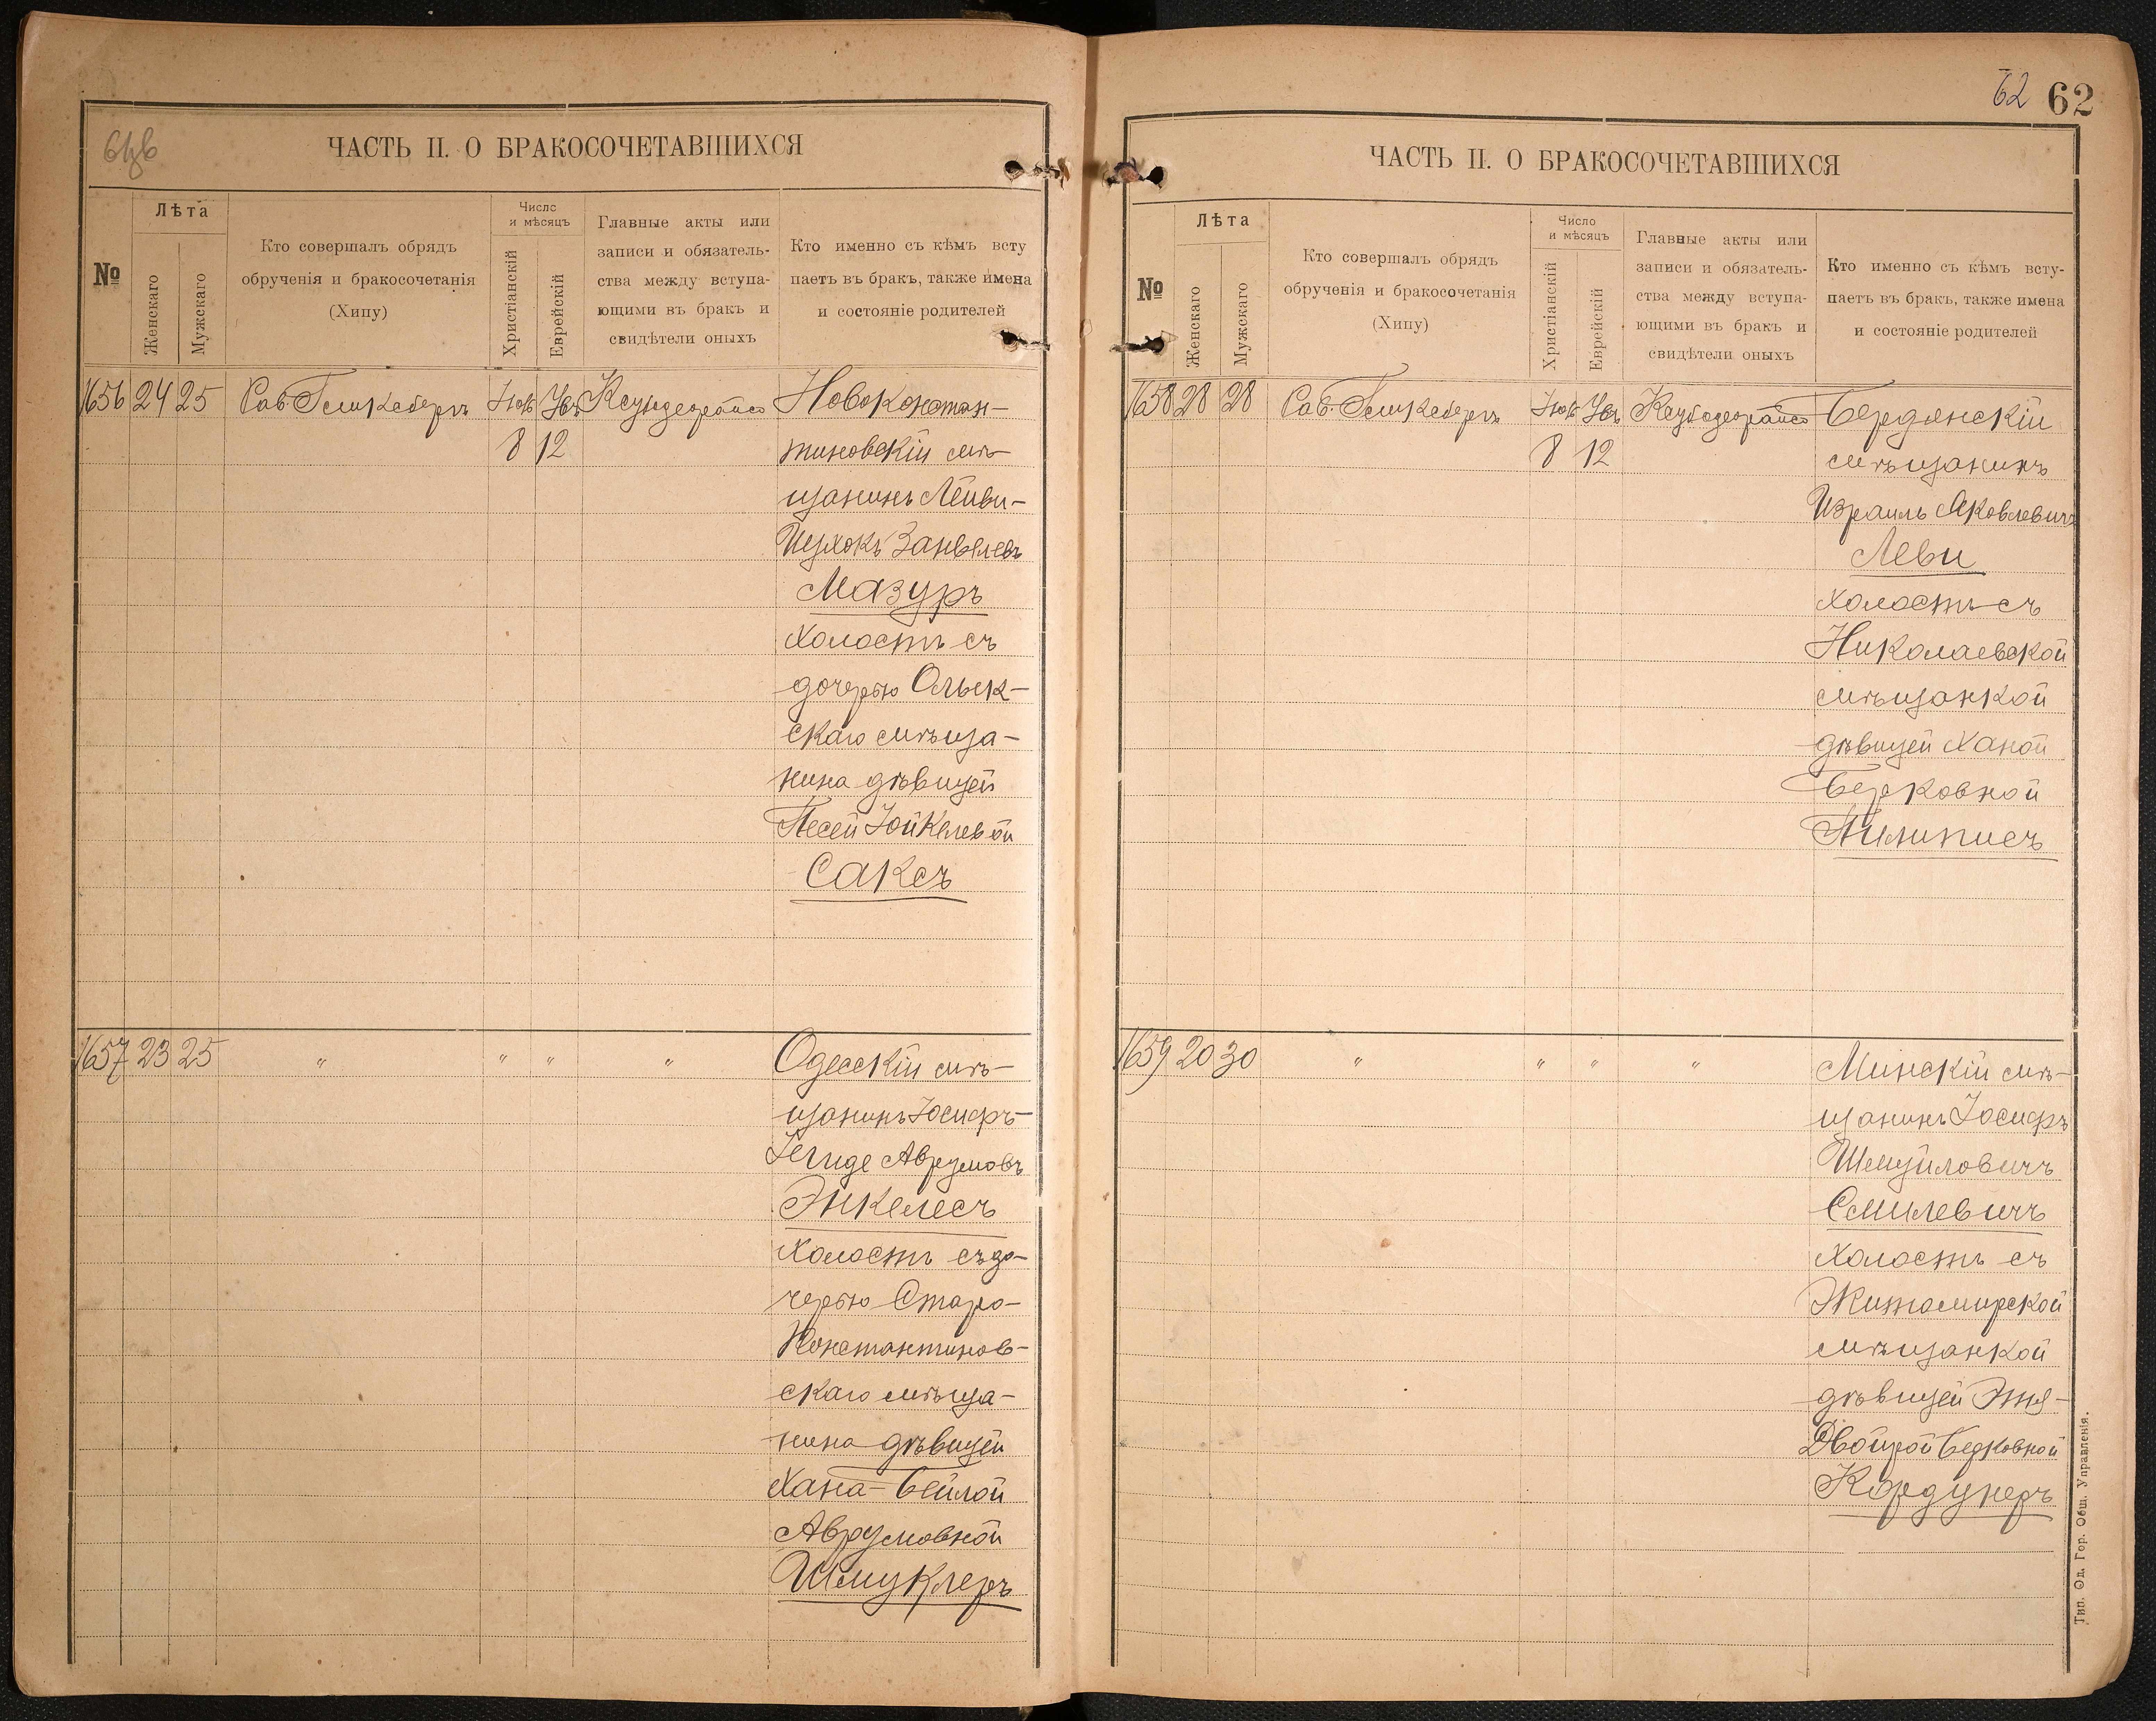 61об
ЧАСТЬ II. О БРАКОСОЧЕТАВШИХСЯ
№
Лѣта
Женскаго
Мужскаго
Кто совершалъ обрядъ
обрученія и бракосочетанія
(Хипу)
Число
и мѣсяцъ
Христіанскій
Еврейскій
Главные акты или
записи и обязатель-
ства между вступа-
ющими въ бракъ и
свидѣтели оныхъ
Кто именно съ кѣмъ всту
паетъ въ бракъ, также имена
и состояніе родителей
1656 24 25
8 12
Новоконстан-
тиновскій мѣ-
щанинъ Лейви-
Ицхокъ Занвелевъ
Мазуръ
холостъ съ
дочерью Ольек-
скаго мѣща-
нина дѣвицей
Песей Іойкелевой
Саксъ
1657 23 25 " " " "
Одесскій мѣ-
щанинъ Іосифъ-
Гегиде Аврумовъ
Энкелесъ
холостъ съ до-
черью Старо-
Константинов-
скаго мѣща-
нина дѣвицей
Хана-Бейлой
Аврумовной
Шмуклеръ
62 62
ЧАСТЬ II. О БРАКОСОЧЕТАВШИХСЯ
№
Лѣта
Женскаго
Мужскаго
Кто совершалъ обрядъ
обрученія и бракосочетанія
(Хипу)
Число
и мѣсяцъ
Христіанскій
Еврейскій
Главные акты или
записи и обязатель-
ства между вступа-
ющими въ бракъ и
свидѣтели оныхъ
Кто именно съ кѣмъ всту-
паетъ въ бракъ, также имена
и состояніе родителей
1658 28 28
8 12
Бердянскій
мѣщанинъ
Израиль Яковлевичъ
Леви
холостъ съ
Николаевской
мѣщанкой
дѣвицей Ханой
Берковной
Пилиписъ
1659 20 30 " " " "
Минскій мѣ-
щанинъ Іосифъ
Шмуйловичъ
Смилевичъ
холостъ съ
Житомирской
мѣщанкой
дѣвицей Этя-
Двойрой Берковной
Кордунеръ
Тип. Од. Гор. Общ. Управленія.